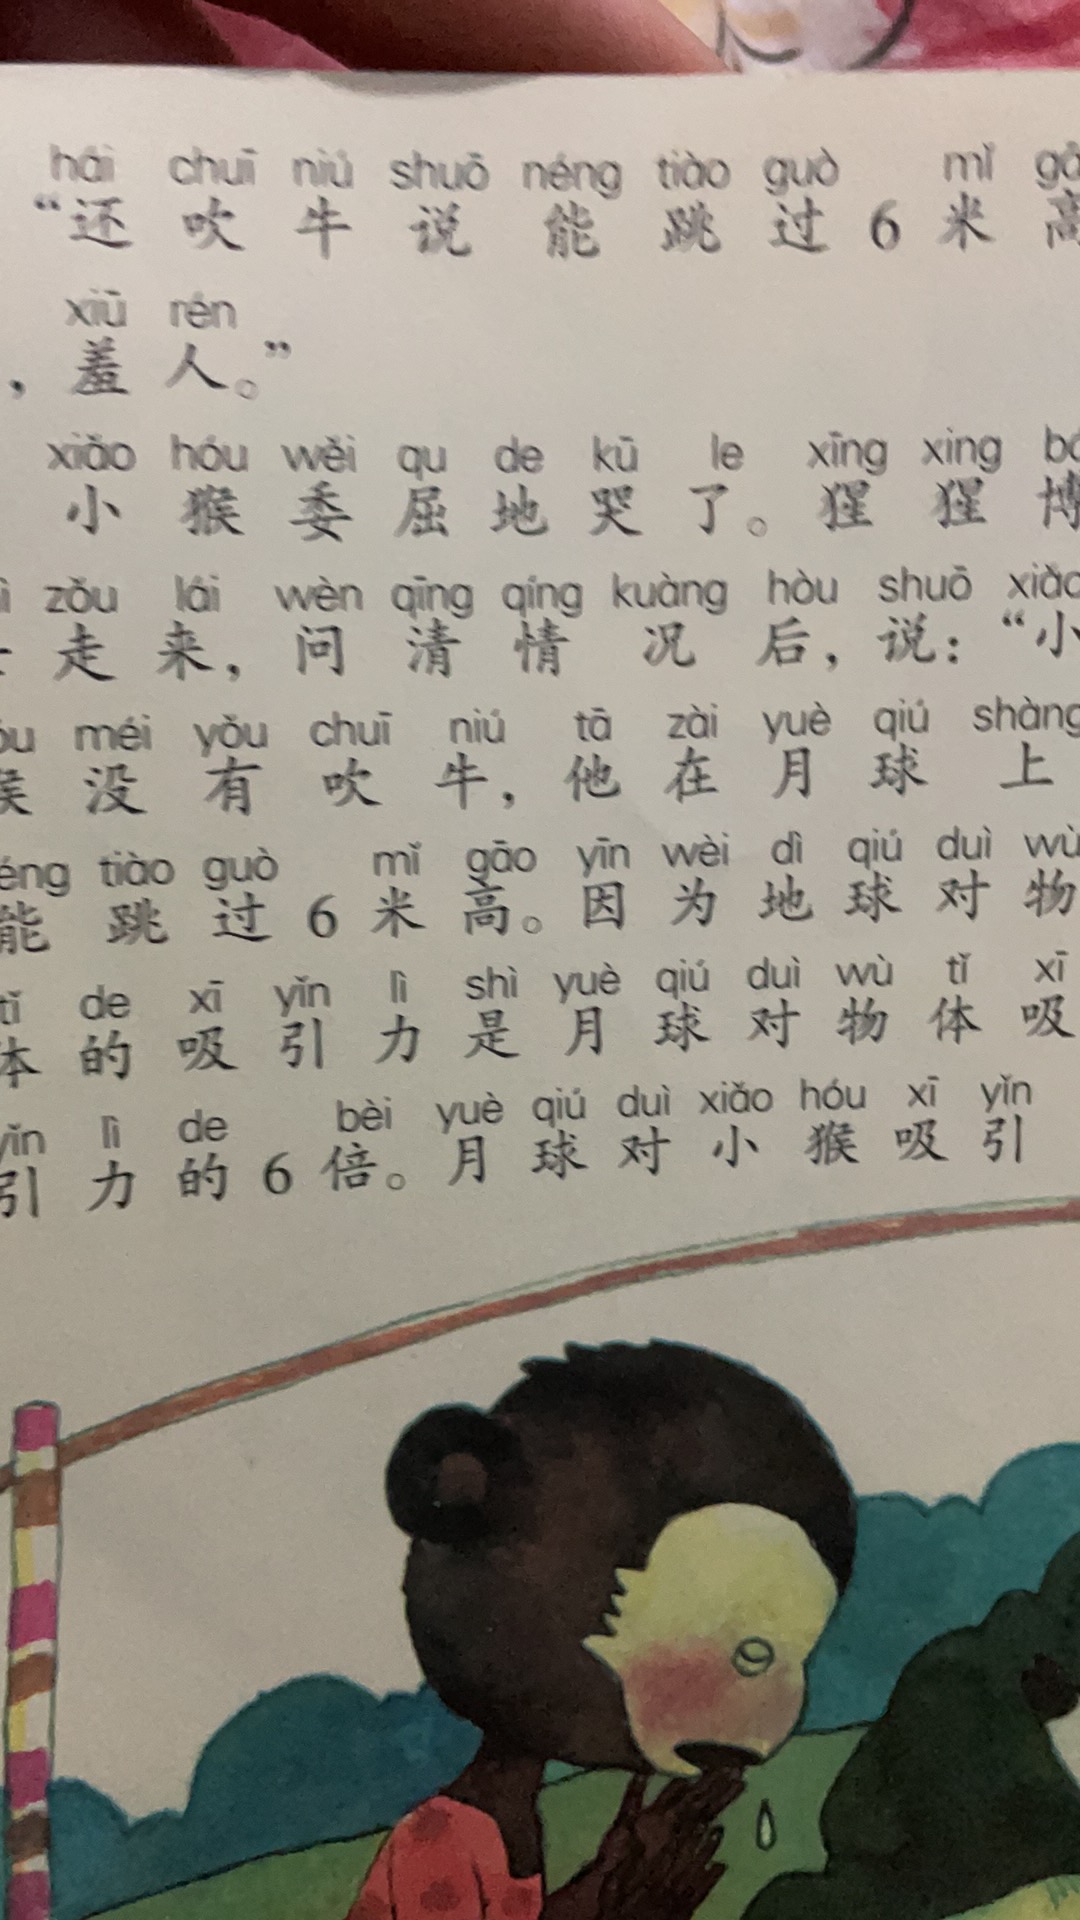 hái chuī niú shuō néng tiào guò mǐ
“还吹牛说能跳过6米高
xiū rén
，羞人。”
xiǎo hóu wěi qu de kū le xīng xing
小猴委屈地哭了。猩猩博
zǒu lái wèn qīng qíng kuàng hòu shuō xiǎo
走来，问清情况后，说：“小
méi yǒu chuī niú tā zài yuè qiú shàng
没有吹牛，他在月球上
tiào guò mǐ gāo yīn wèi dì qiú duì wù
能跳过6米高。因为地球对物
de xī yǐn lì shì yuè qiú duì wù tǐ xī
体的吸引力是月球对物体吸
yǐn lì de bèi yuè qiú duì xiǎo hóu xī yǐn
引力的6倍。月球对小猴吸引